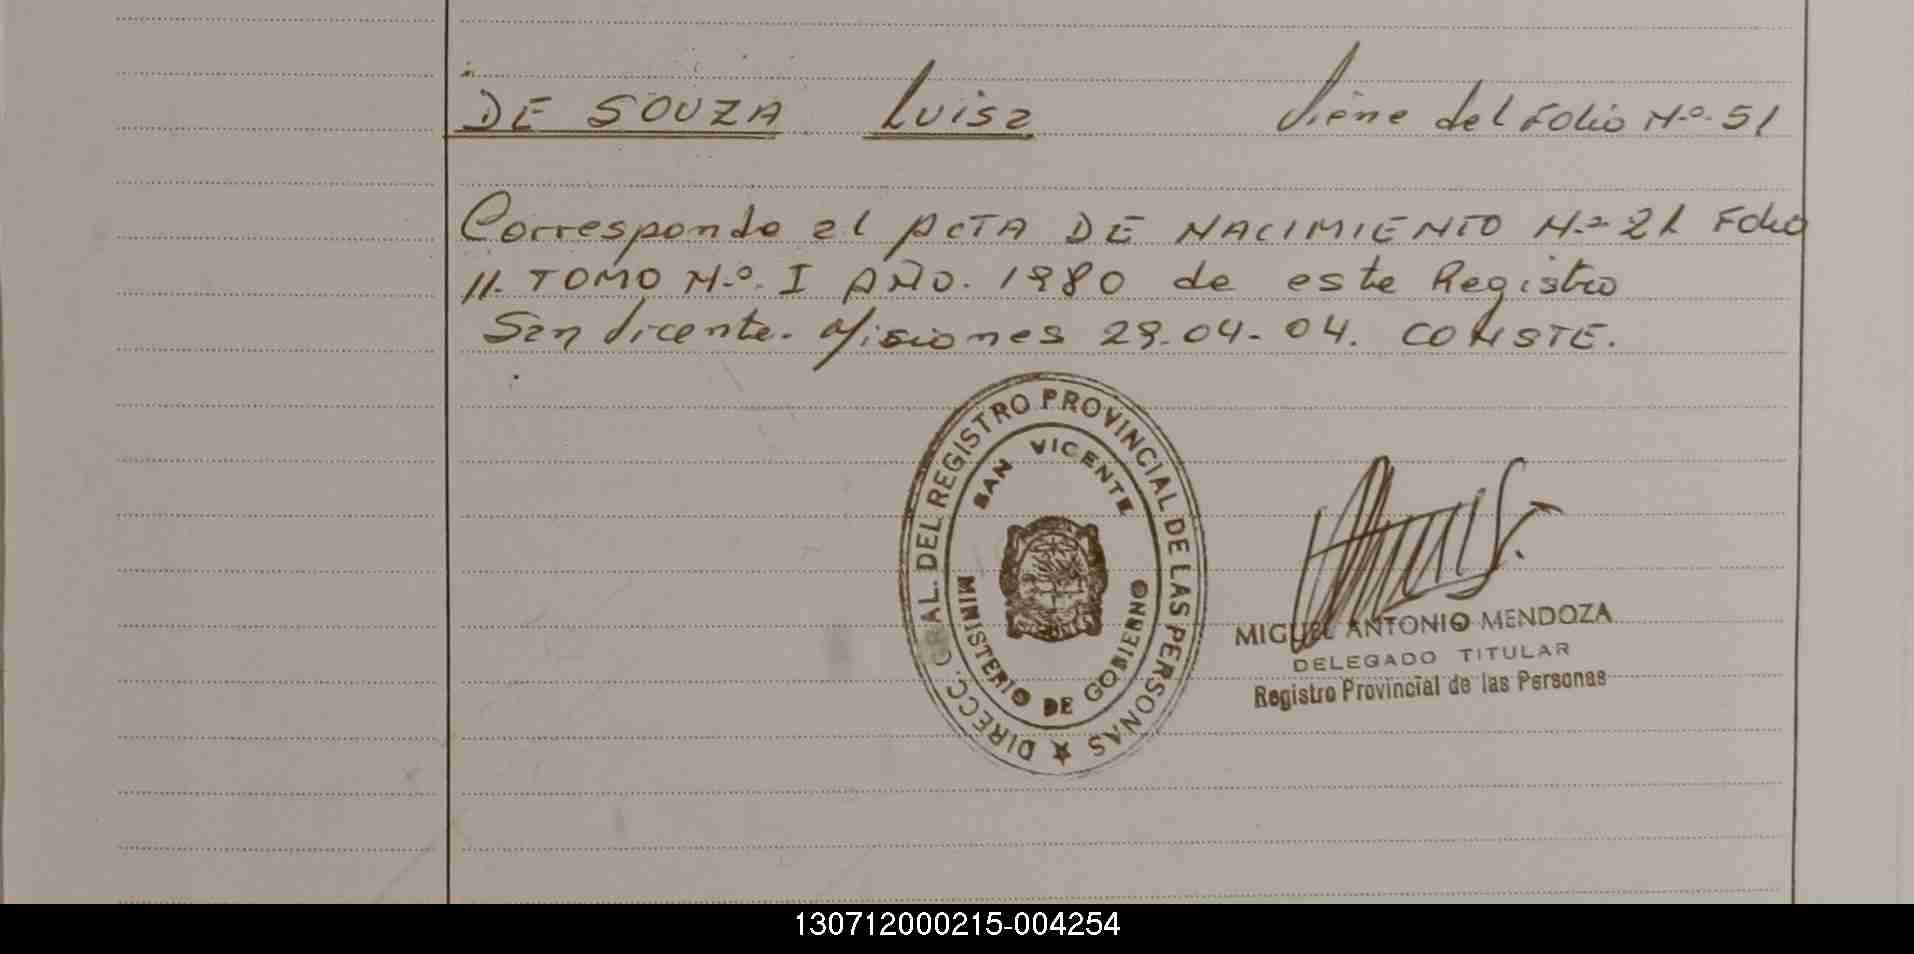 DE SOUZA Luisa Viene del Folio N.º 51
Corresponde al ACTA DE NACIMIENTO N.º 21 Folio
11. TOMO N.º I AÑO. 1980 de este Registro
San Vicente. Misiones 29.04-04. CONSTE.
DIRECC. GRAL. DEL REGISTRO PROVINCIAL DE LAS PERSONAS ★
SAN VICENTE
MINISTERIO DE GOBIERNO
MIGUEL ANTONIO MENDOZA
DELEGADO TITULAR
Registro Provincial de las Personas
130712000215-004254